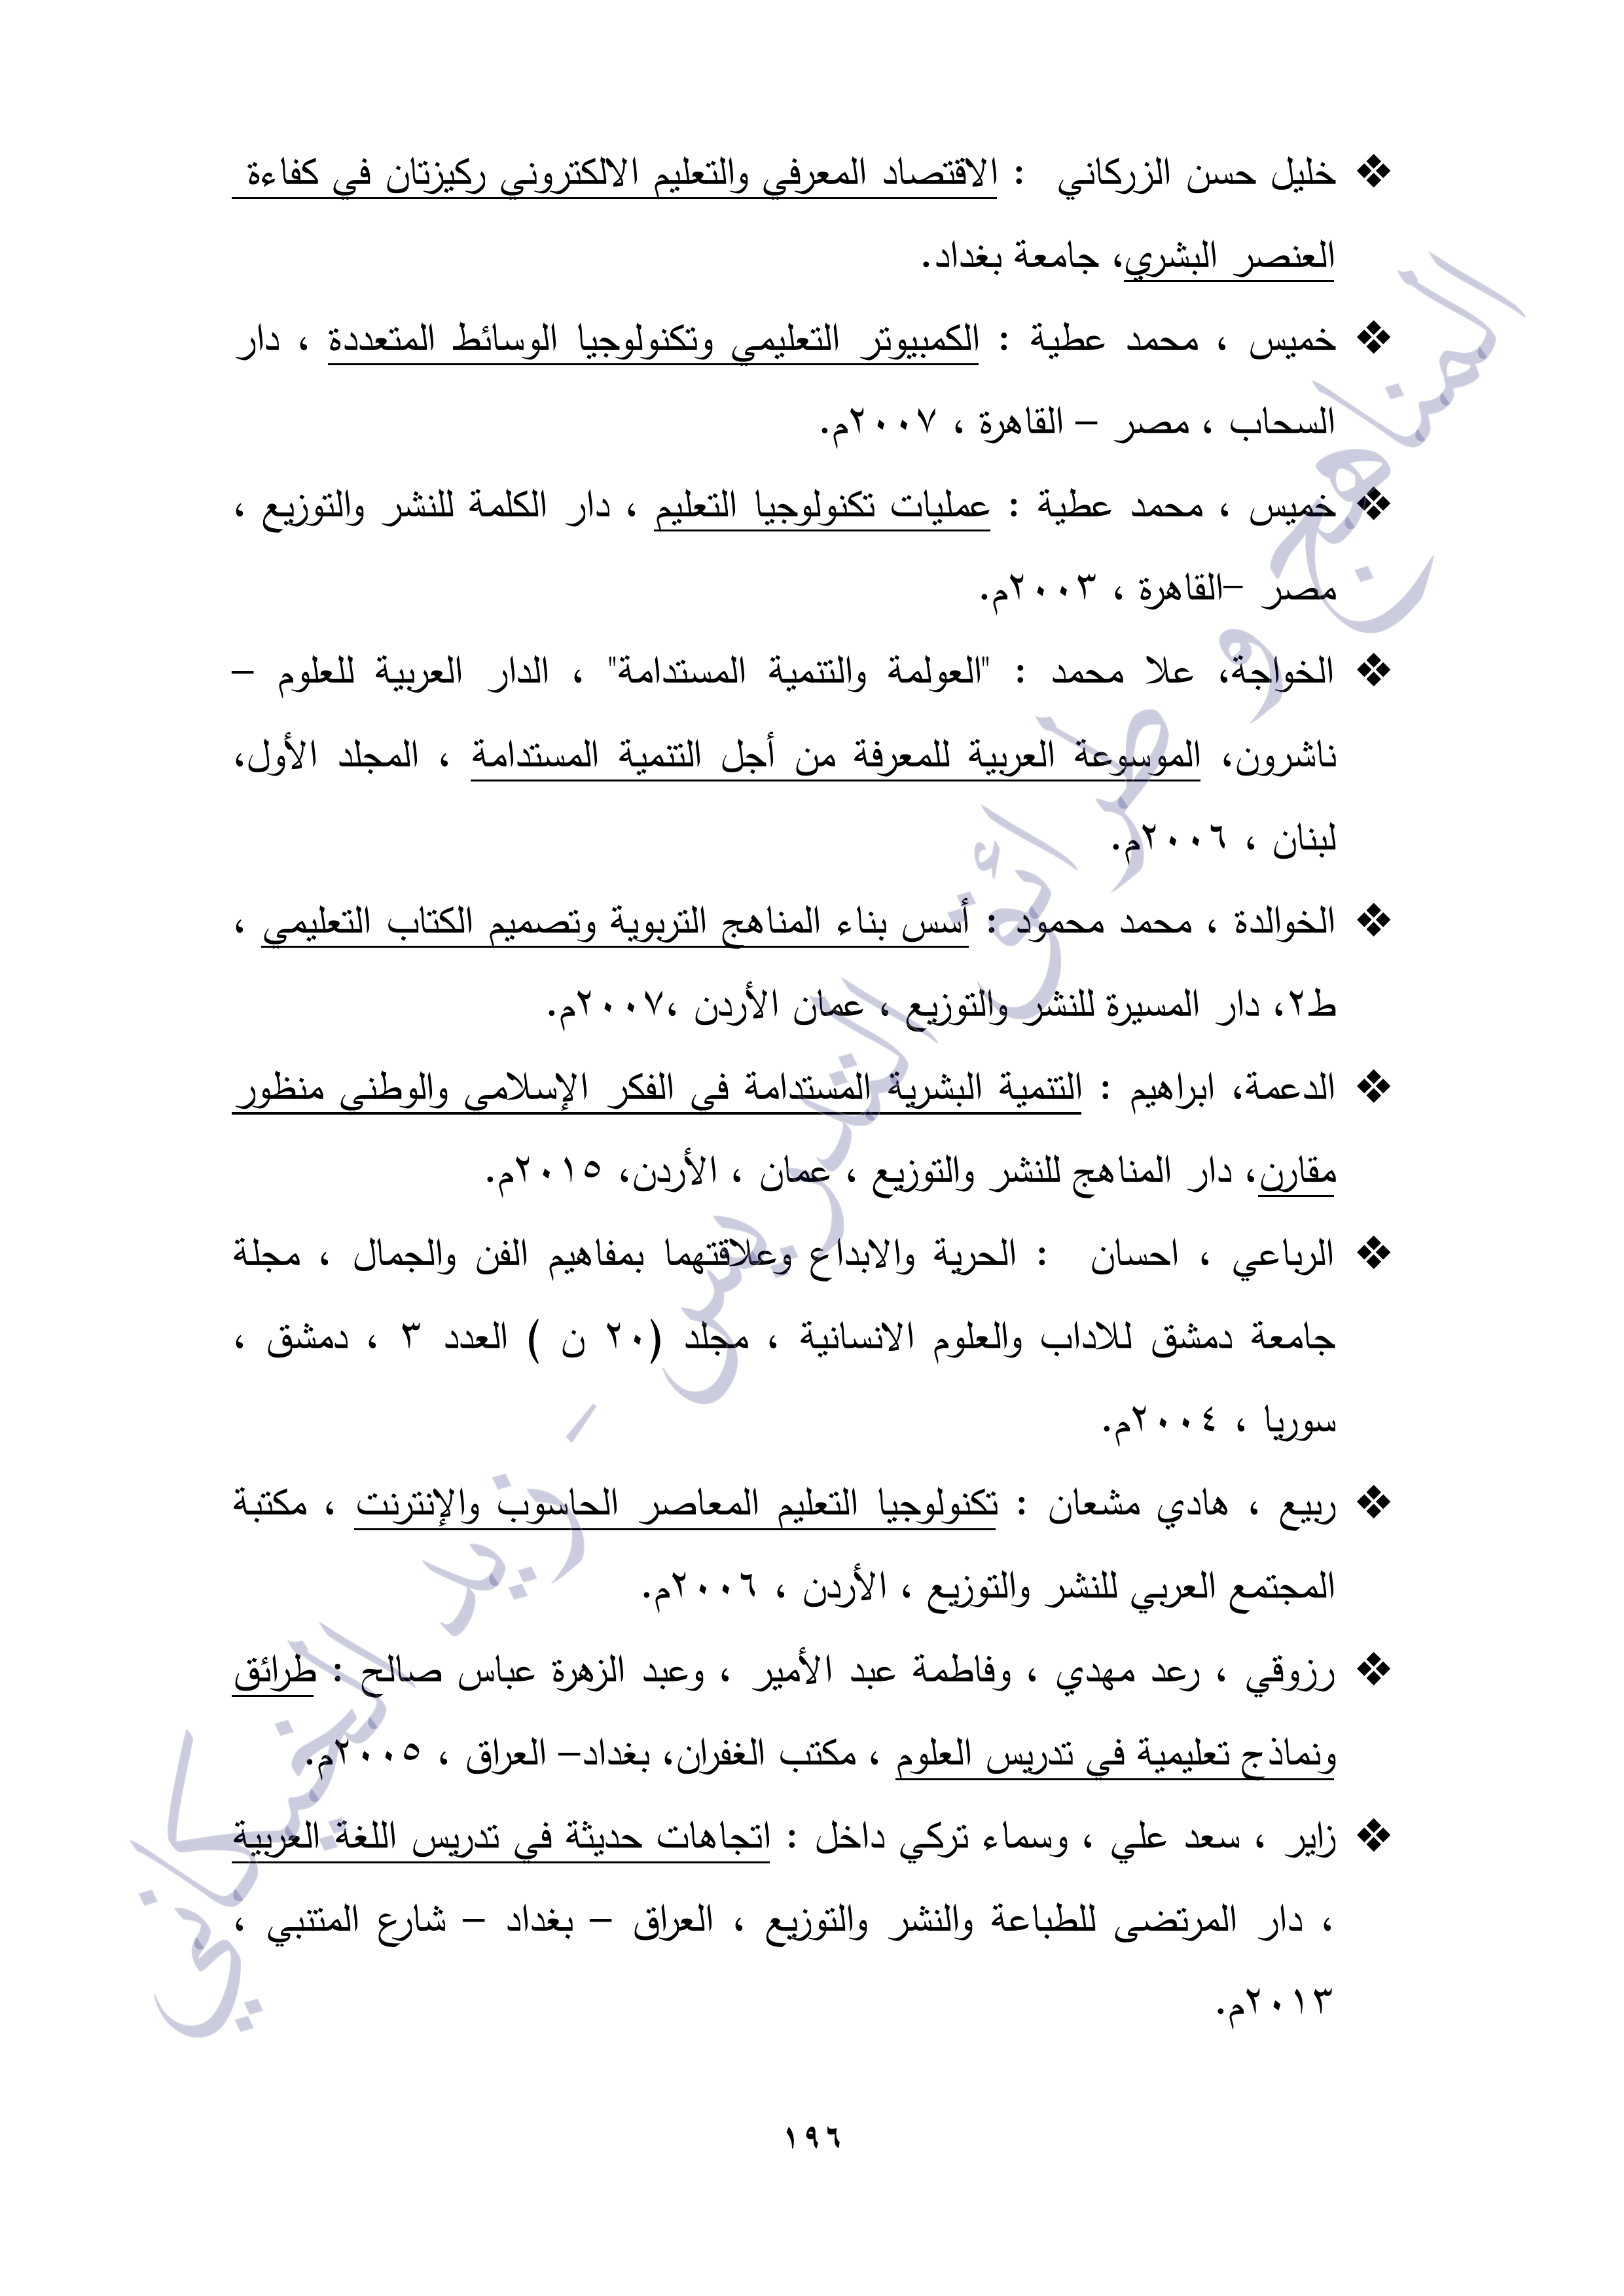 ❖ خليل حسن الزركاني : الاقتصاد المعرفي والتعليم الالكتروني ركيزتان في كفاءة
العنصر البشري، جامعة بغداد.
❖ خميس ، محمد عطية : الكمبيوتر التعليمي وتكنولوجيا الوسائط المتعددة ، دار
السحاب ، مصر – القاهرة ، ٢٠٠٧م.
❖ خميس ، محمد عطية : عمليات تكنولوجيا التعليم ، دار الكلمة للنشر والتوزيع ،
مصر –القاهرة ، ٢٠٠٣م.
❖ الخواجة، علا محمد : "العولمة والتنمية المستدامة" ، الدار العربية للعلوم –
ناشرون، الموسوعة العربية للمعرفة من أجل التنمية المستدامة ، المجلد الأول،
لبنان ، ٢٠٠٦م.
❖ الخوالدة ، محمد محمود : أسس بناء المناهج التربوية وتصميم الكتاب التعليمي ،
ط٢، دار المسيرة للنشر والتوزيع ، عمان الأردن ،٢٠٠٧م.
❖ الدعمة، ابراهيم : التنمية البشرية المستدامة في الفكر الإسلامي والوطني منظور
مقارن، دار المناهج للنشر والتوزيع ، عمان ، الأردن، ٢٠١٥م.
❖ الرباعي ، احسان : الحرية والابداع وعلاقتهما بمفاهيم الفن والجمال ، مجلة
جامعة دمشق للاداب والعلوم الانسانية ، مجلد (٢٠ ن ) العدد ٣ ، دمشق ،
سوريا ، ٢٠٠٤م.
❖ ربيع ، هادي مشعان : تكنولوجيا التعليم المعاصر الحاسوب والإنترنت ، مكتبة
المجتمع العربي للنشر والتوزيع ، الأردن ، ٢٠٠٦م.
❖ رزوقي ، رعد مهدي ، وفاطمة عبد الأمير ، وعبد الزهرة عباس صالح : طرائق
ونماذج تعليمية في تدريس العلوم ، مكتب الغفران، بغداد– العراق ، ٢٠٠٥م.
❖ زاير ، سعد علي ، وسماء تركي داخل : اتجاهات حديثة في تدريس اللغة العربية
، دار المرتضى للطباعة والنشر والتوزيع ، العراق – بغداد – شارع المتنبي ،
٢٠١٣م.
١٩٦
المناهج و طرائق التدريس - زيد الخيكاني